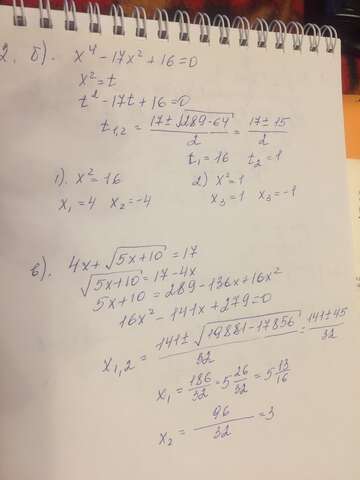 2. б). x⁴ - 17x² + 16 = 0
x² = t
t² - 17t + 16 = 0
t₁,₂ = (17 ± √(289-64))/2 = (17 ± 15)/2
t₁ = 16 t₂ = 1
1). x² = 16 2) x² = 1
x₁ = 4 x₂ = -4 x₃ = 1 x₃ = -1
в). 4x + √(5x+10) = 17
√(5x+10) = 17 - 4x
5x + 10 = 289 - 136x + 16x²
16x² - 141x + 279 = 0
x₁,₂ = (141 ± √(19881-17856))/32 = (141 ± 45)/32
x₁ = 186/32 = 5 26/32 = 5 13/16
x₂ = 96/32 = 3